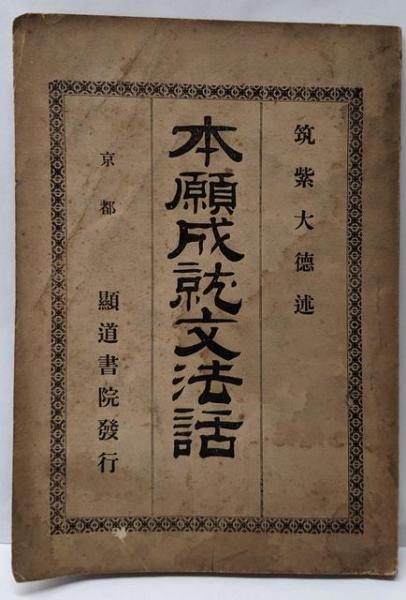 筑紫大德述
本願成就文法話
京都
顯道書院發行